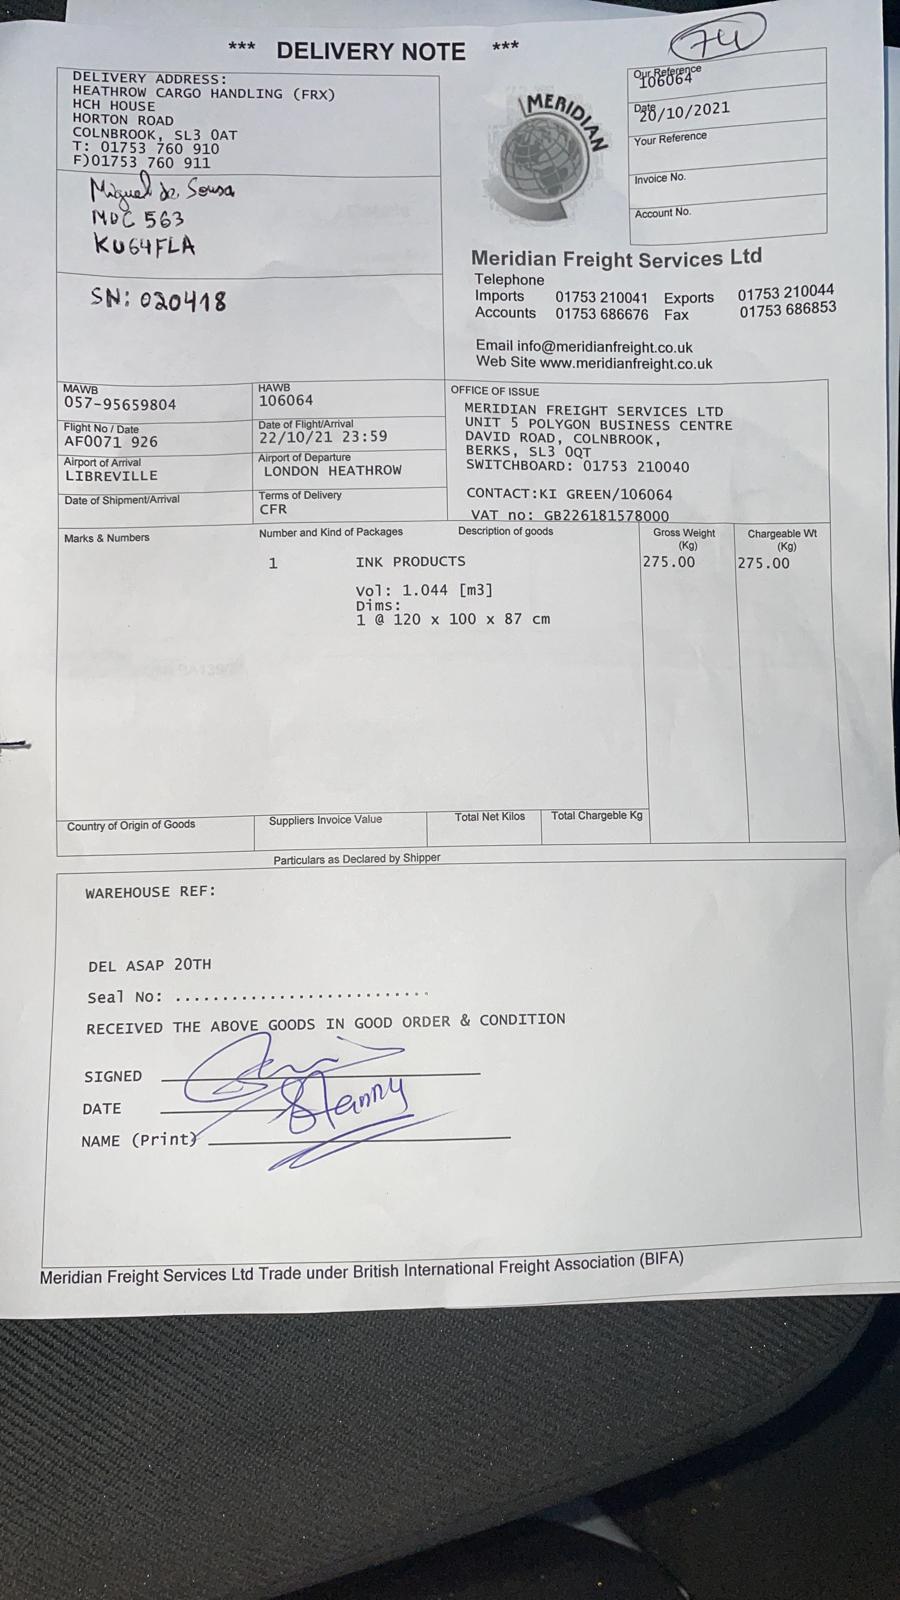 *** DELIVERY NOTE ***
74
DELIVERY ADDRESS:
HEATHROW CARGO HANDLING (FRX)
HCH HOUSE
HORTON ROAD
COLNBROOK, SL3 0AT
T: 01753 760 910
F)01753 760 911
Miguel de Sousa
MDC 563
KU64FLA
SN: 020418
MERIDIAN
Our Reference
106064
Date
20/10/2021
Your Reference
Invoice No.
Account No.
Meridian Freight Services Ltd
Telephone
Imports 01753 210041 Exports 01753 210044
Accounts 01753 686676 Fax 01753 686853
Email info@meridianfreight.co.uk
Web Site www.meridianfreight.co.uk
MAWB
057-95659804
HAWB
106064
Flight No / Date
AF0071 926
Date of Flight/Arrival
22/10/21 23:59
Airport of Arrival
LIBREVILLE
Airport of Departure
LONDON HEATHROW
Date of Shipment/Arrival
Terms of Delivery
CFR
OFFICE OF ISSUE
MERIDIAN FREIGHT SERVICES LTD
UNIT 5 POLYGON BUSINESS CENTRE
DAVID ROAD, COLNBROOK,
BERKS, SL3 0QT
SWITCHBOARD: 01753 210040
CONTACT:KI GREEN/106064
VAT no: GB226181578000
Marks & Numbers
Number and Kind of Packages
Description of goods
Gross Weight
(Kg)
Chargeable Wt
(Kg)
1 INK PRODUCTS 275.00 275.00
Vol: 1.044 [m3]
Dims:
1 @ 120 x 100 x 87 cm
Country of Origin of Goods
Suppliers Invoice Value
Total Net Kilos
Total Chargeable Kg
Particulars as Declared by Shipper
WAREHOUSE REF:
DEL ASAP 20TH
Seal No: ...........................
RECEIVED THE ABOVE GOODS IN GOOD ORDER & CONDITION
SIGNED
DATE
NAME (Print)
Meridian Freight Services Ltd Trade under British International Freight Association (BIFA)